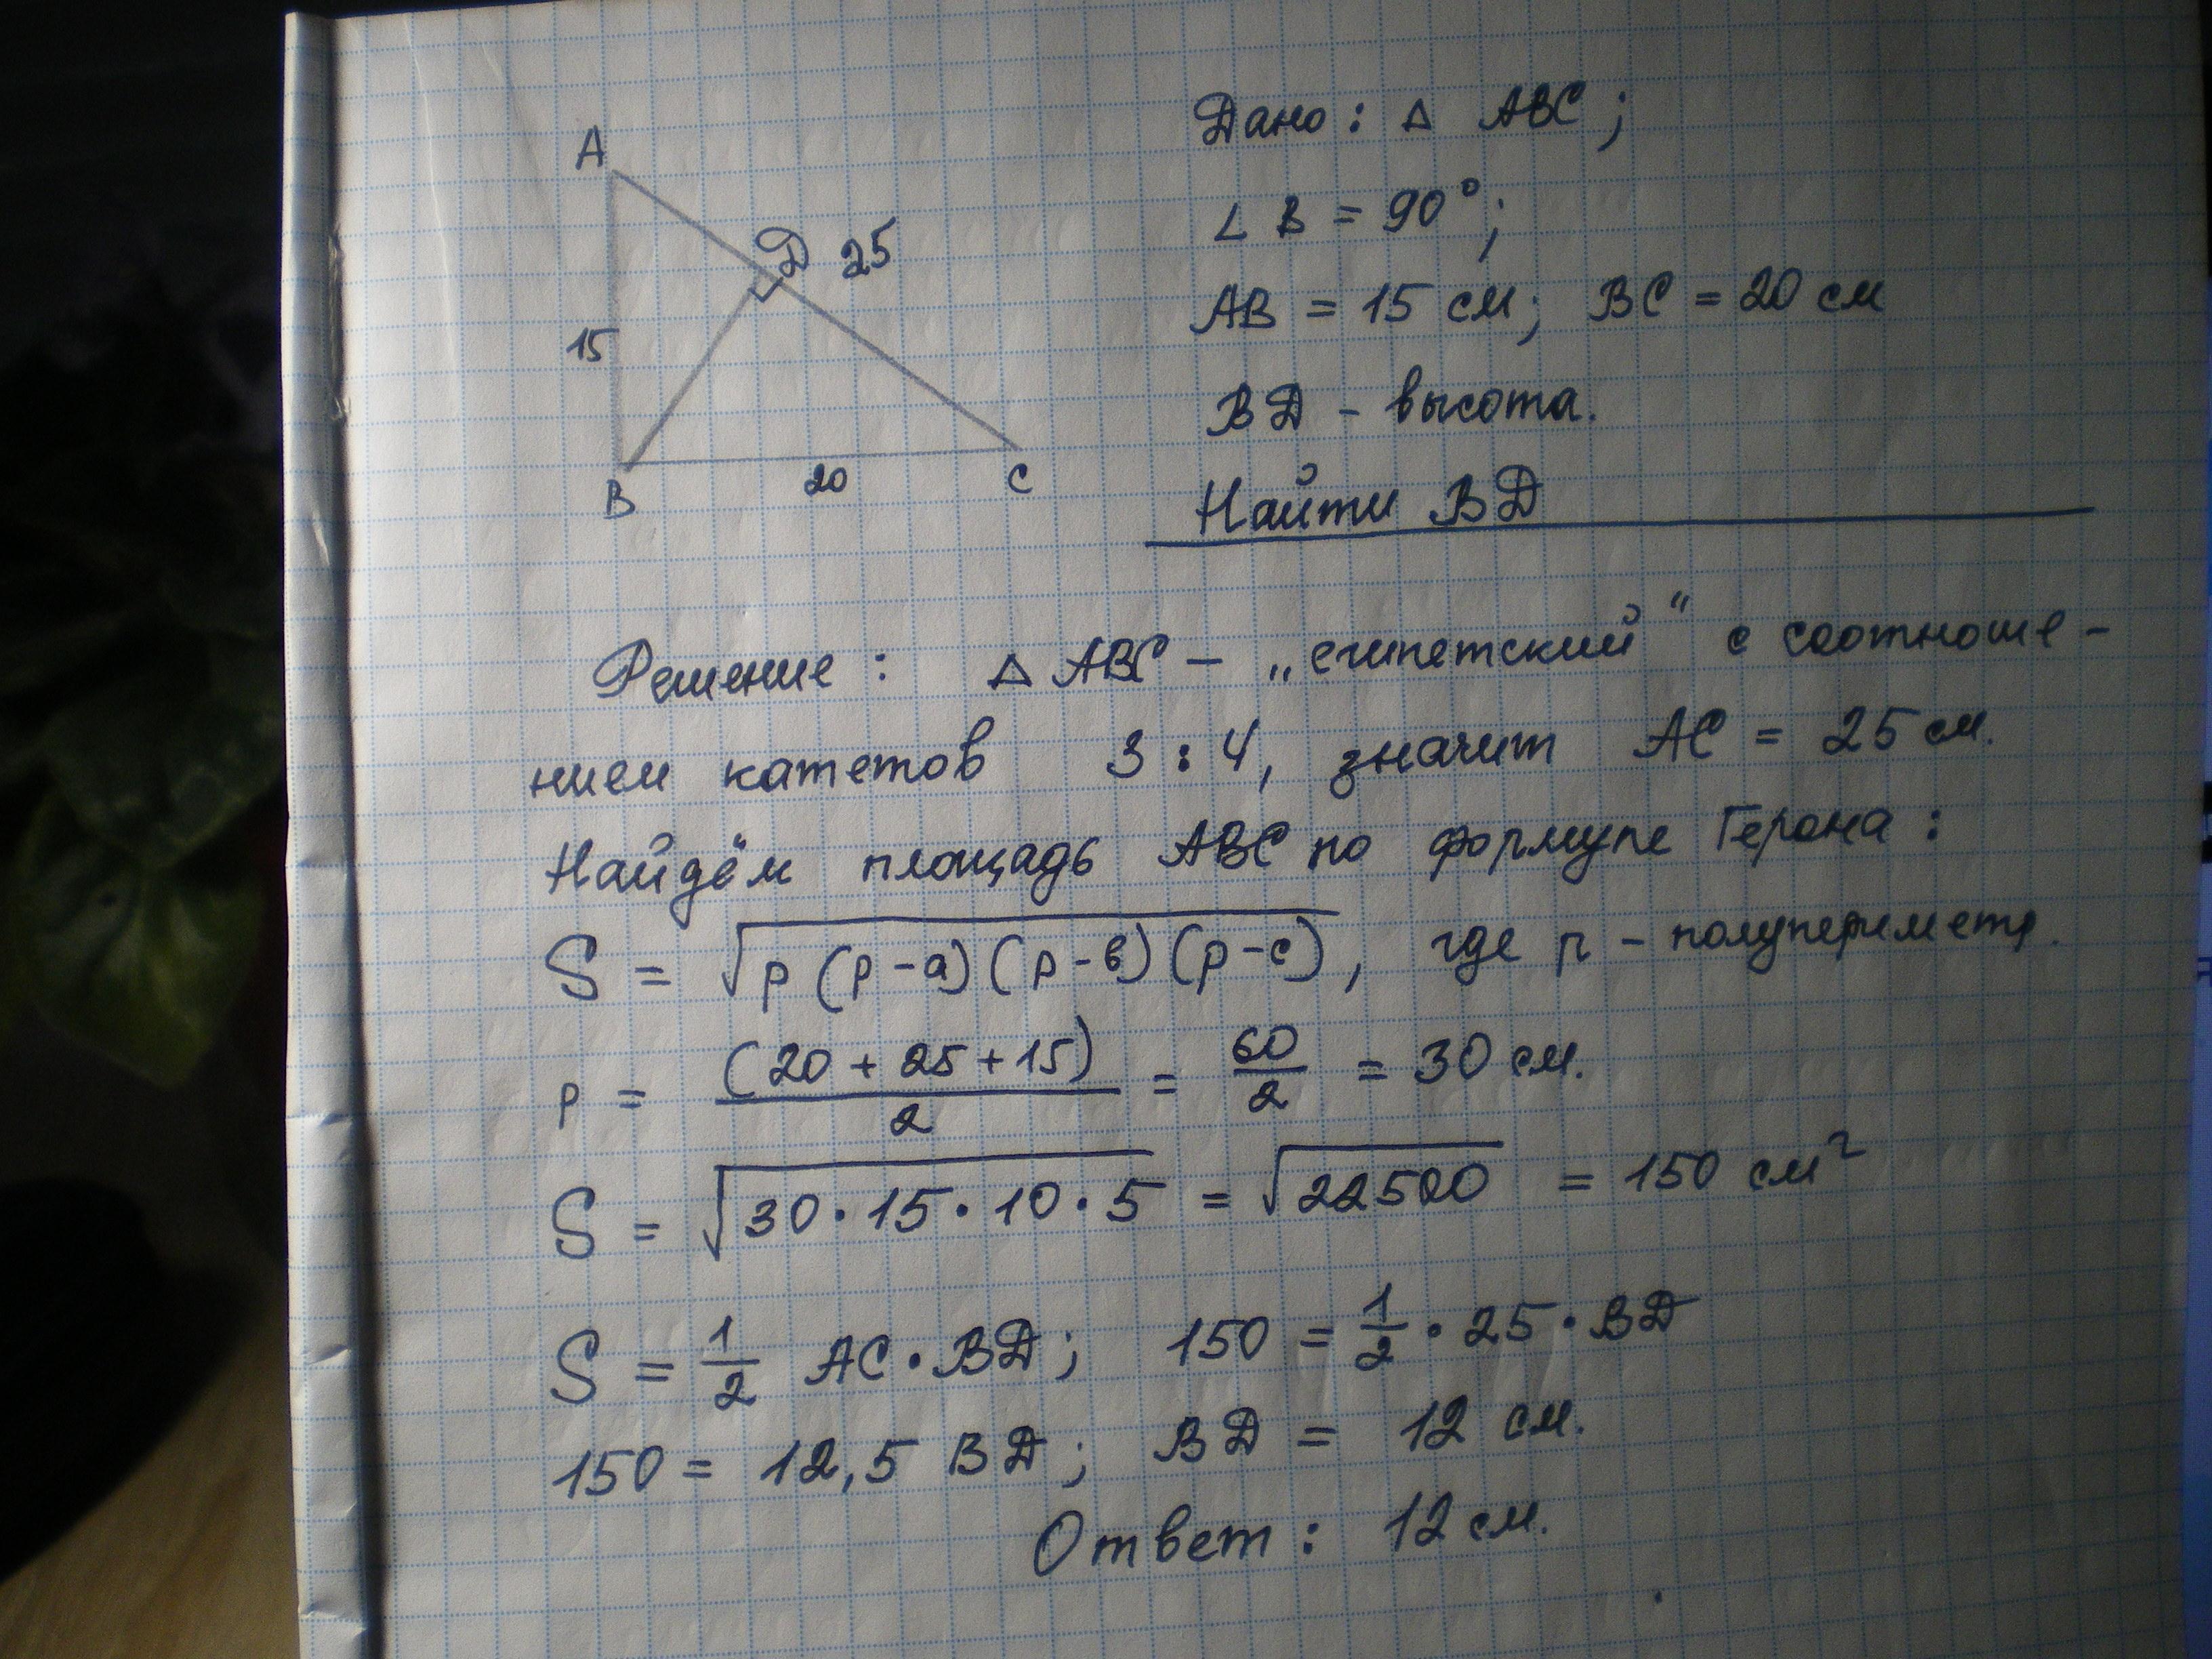 A
Д 25
15
B
20
C
Дано: △ ABC;
∠ B = 90°;
AB = 15 см; BC = 20 см
BД - высота.
Найти BД
Решение: △ ABC – „египетский“ с соотноше-
нием катетов 3 : 4, значит AC = 25 см.
Найдём площадь ABC по формуле Герона:
S = √p (p-a) (p-в) (p-c), где p - полупериметр.
p = (20 + 25 + 15)/2 = 60/2 = 30 см.
S = √30 · 15 · 10 · 5 = √22500 = 150 см²
S = 1/2 AC · BД; 150 = 1/2 · 25 · BД
150 = 12,5 BД; BД = 12 см.
Ответ: 12 см.